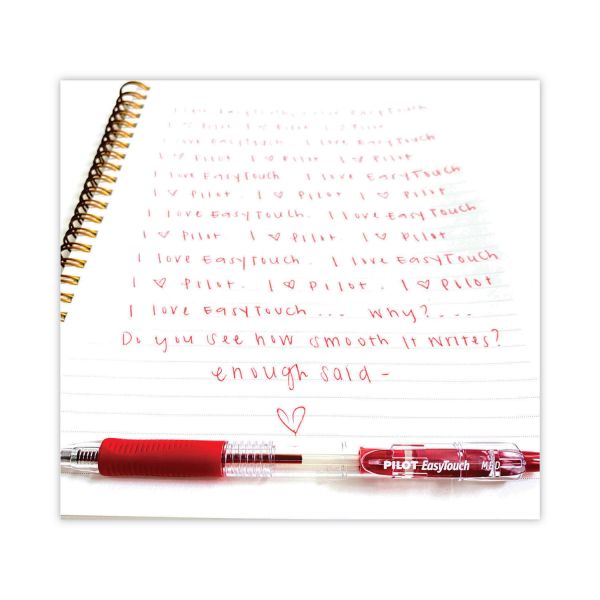 EasyTouch
I ♡ Pilot I ♡ Pilot
I love EasyTouch I love EasyTouch
I ♡ Pilot I ♡ Pilot I ♡ Pilot
I love EasyTouch. I love EasyTouch
I ♡ Pilot. I ♡ Pilot I ♡ Pilot
I love EasyTouch. I love EasyTouch
I ♡ Pilot. I ♡ Pilot. I ♡ Pilot
I love EasyTouch. I love EasyTouch
I ♡ Pilot. I ♡ Pilot. I ♡ Pilot
I love EasyTouch... Why?...
Do you see how smooth it writes?
enough said -
♡
PILOT EasyTouch MED